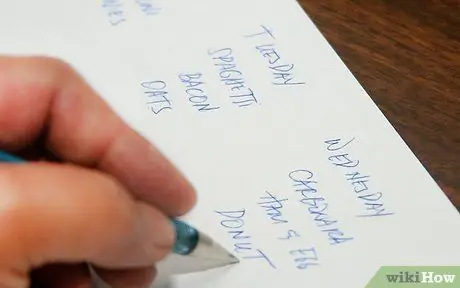 TUESDAY
SPAGHETTI
BACON
OATS
WEDNESDAY
CARBONARA
HAM & EGG
DONUT
wikiHow